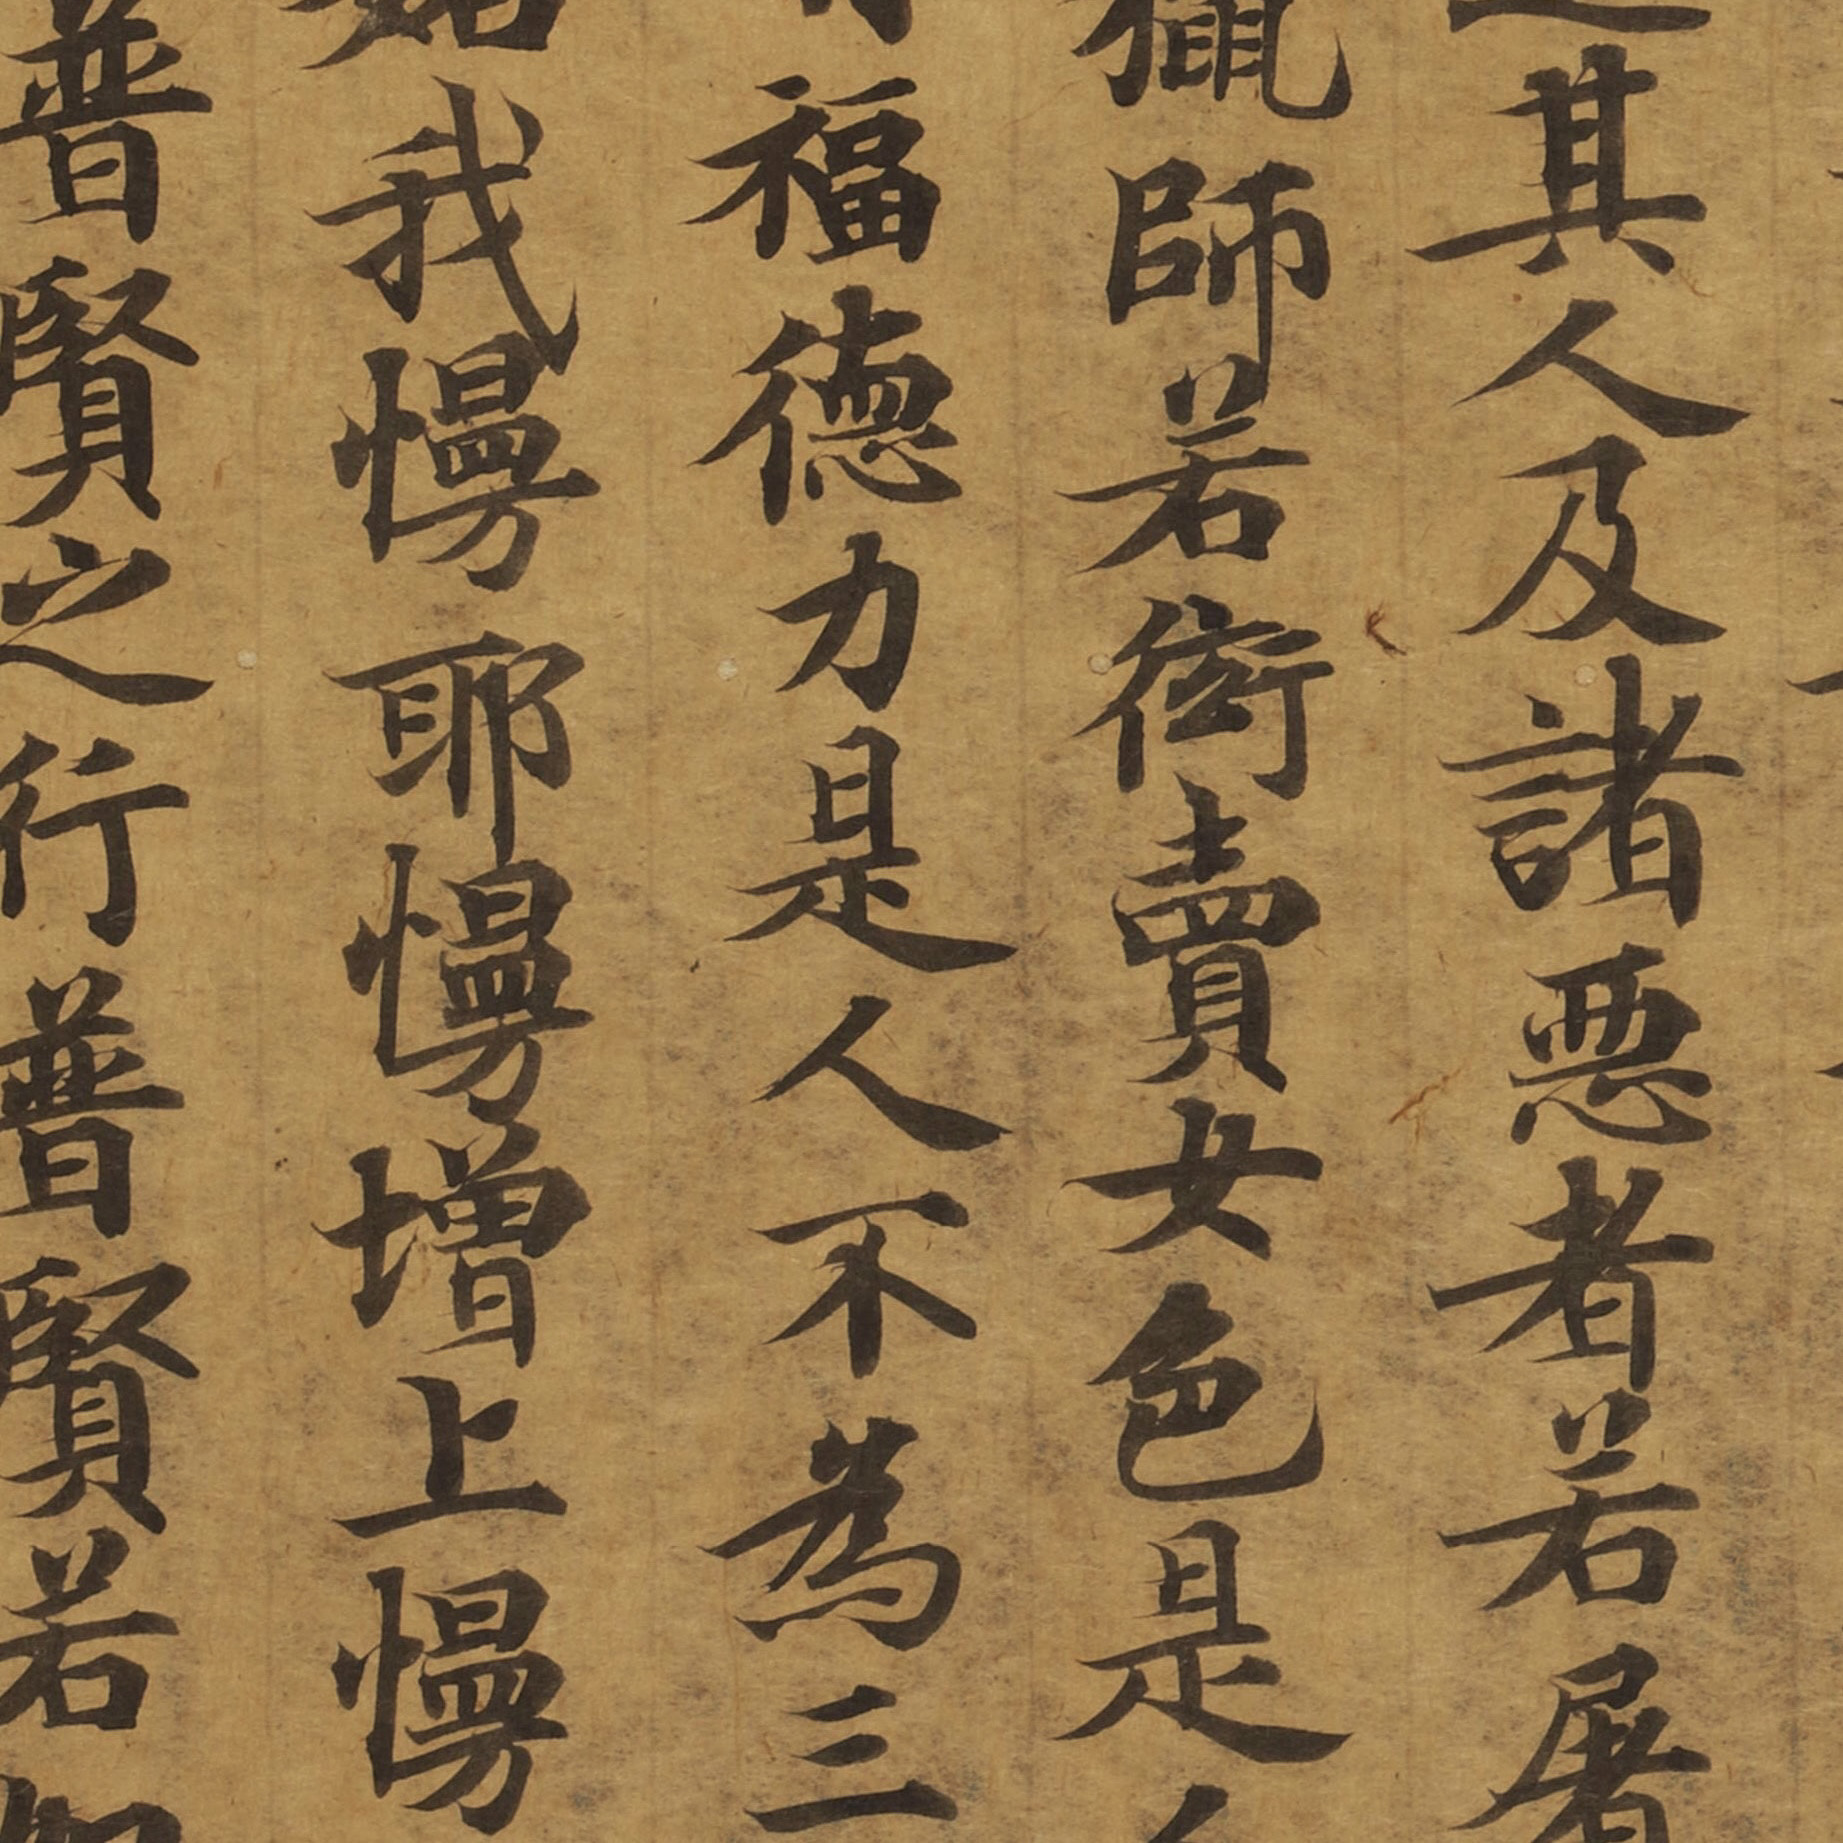 其人及諸惡者若屠
獵師若衒賣女色是
福德力是人不為三
我慢耶慢增上慢
普賢之行普賢若